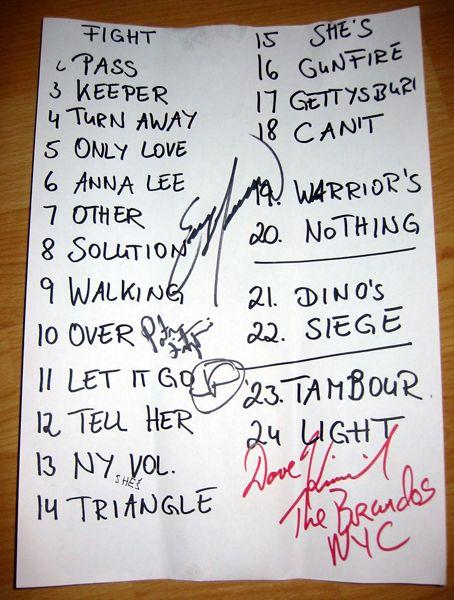 FIGHT
2 PASS
3 KEEPER
4 TURN AWAY
5 ONLY LOVE
6 ANNA LEE
7 OTHER
8 SOLUTION
9 WALKING
10 OVER
11 LET IT GO
12 TELL HER
13 NY VOL.
SHE'S
14 TRIANGLE
15 SHE'S
16 GUNFIRE
17 GETTYSBURG
18 CAN'T
19. WARRIOR'S
20. NOTHING
21. DINO'S
22. SIEGE
23. TAMBOUR.
24 LIGHT
Dave
The Brandos
NYC